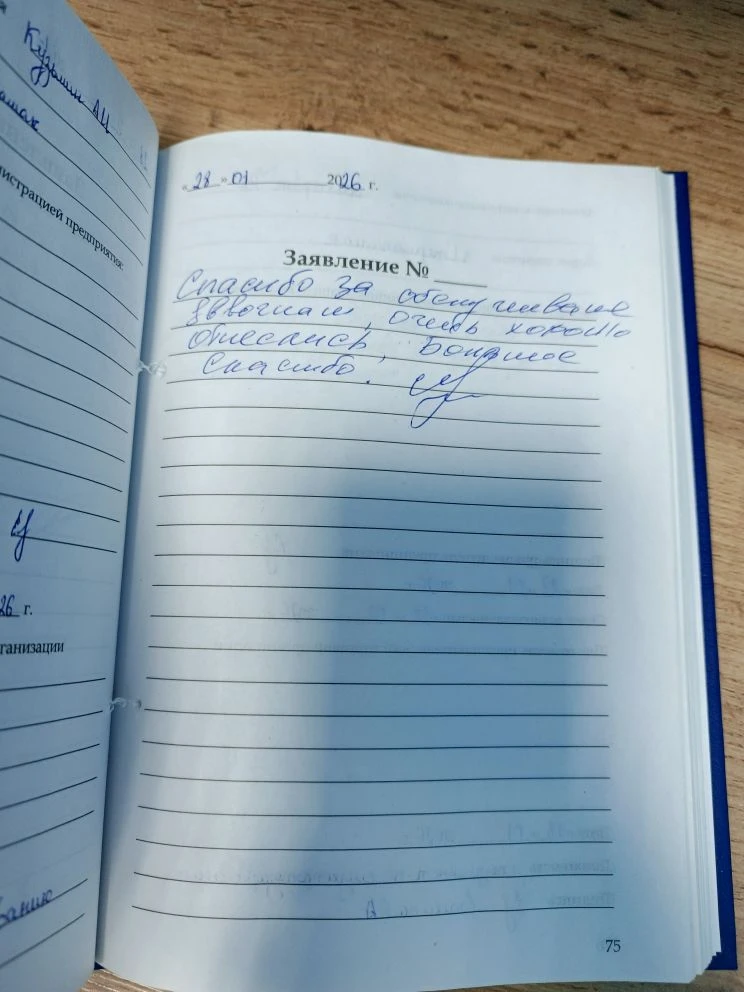 Кузьмин АЦ
нистрацией предприятия:
26 г.
ганизации
ванию
« 28 » 01 2026 г.
Заявление №
Спасибо за обслуживание
очень хорошо
отнеслись, Большое
спасибо.
75